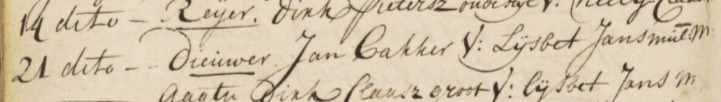 14 dito - Reijer. Dirk Pietersz V: Neeltj
21 dito - - Dieuwer Jan Bakker V: Lijsbet Jans M
Dirk Claasz groot V: lijsbet Jans M